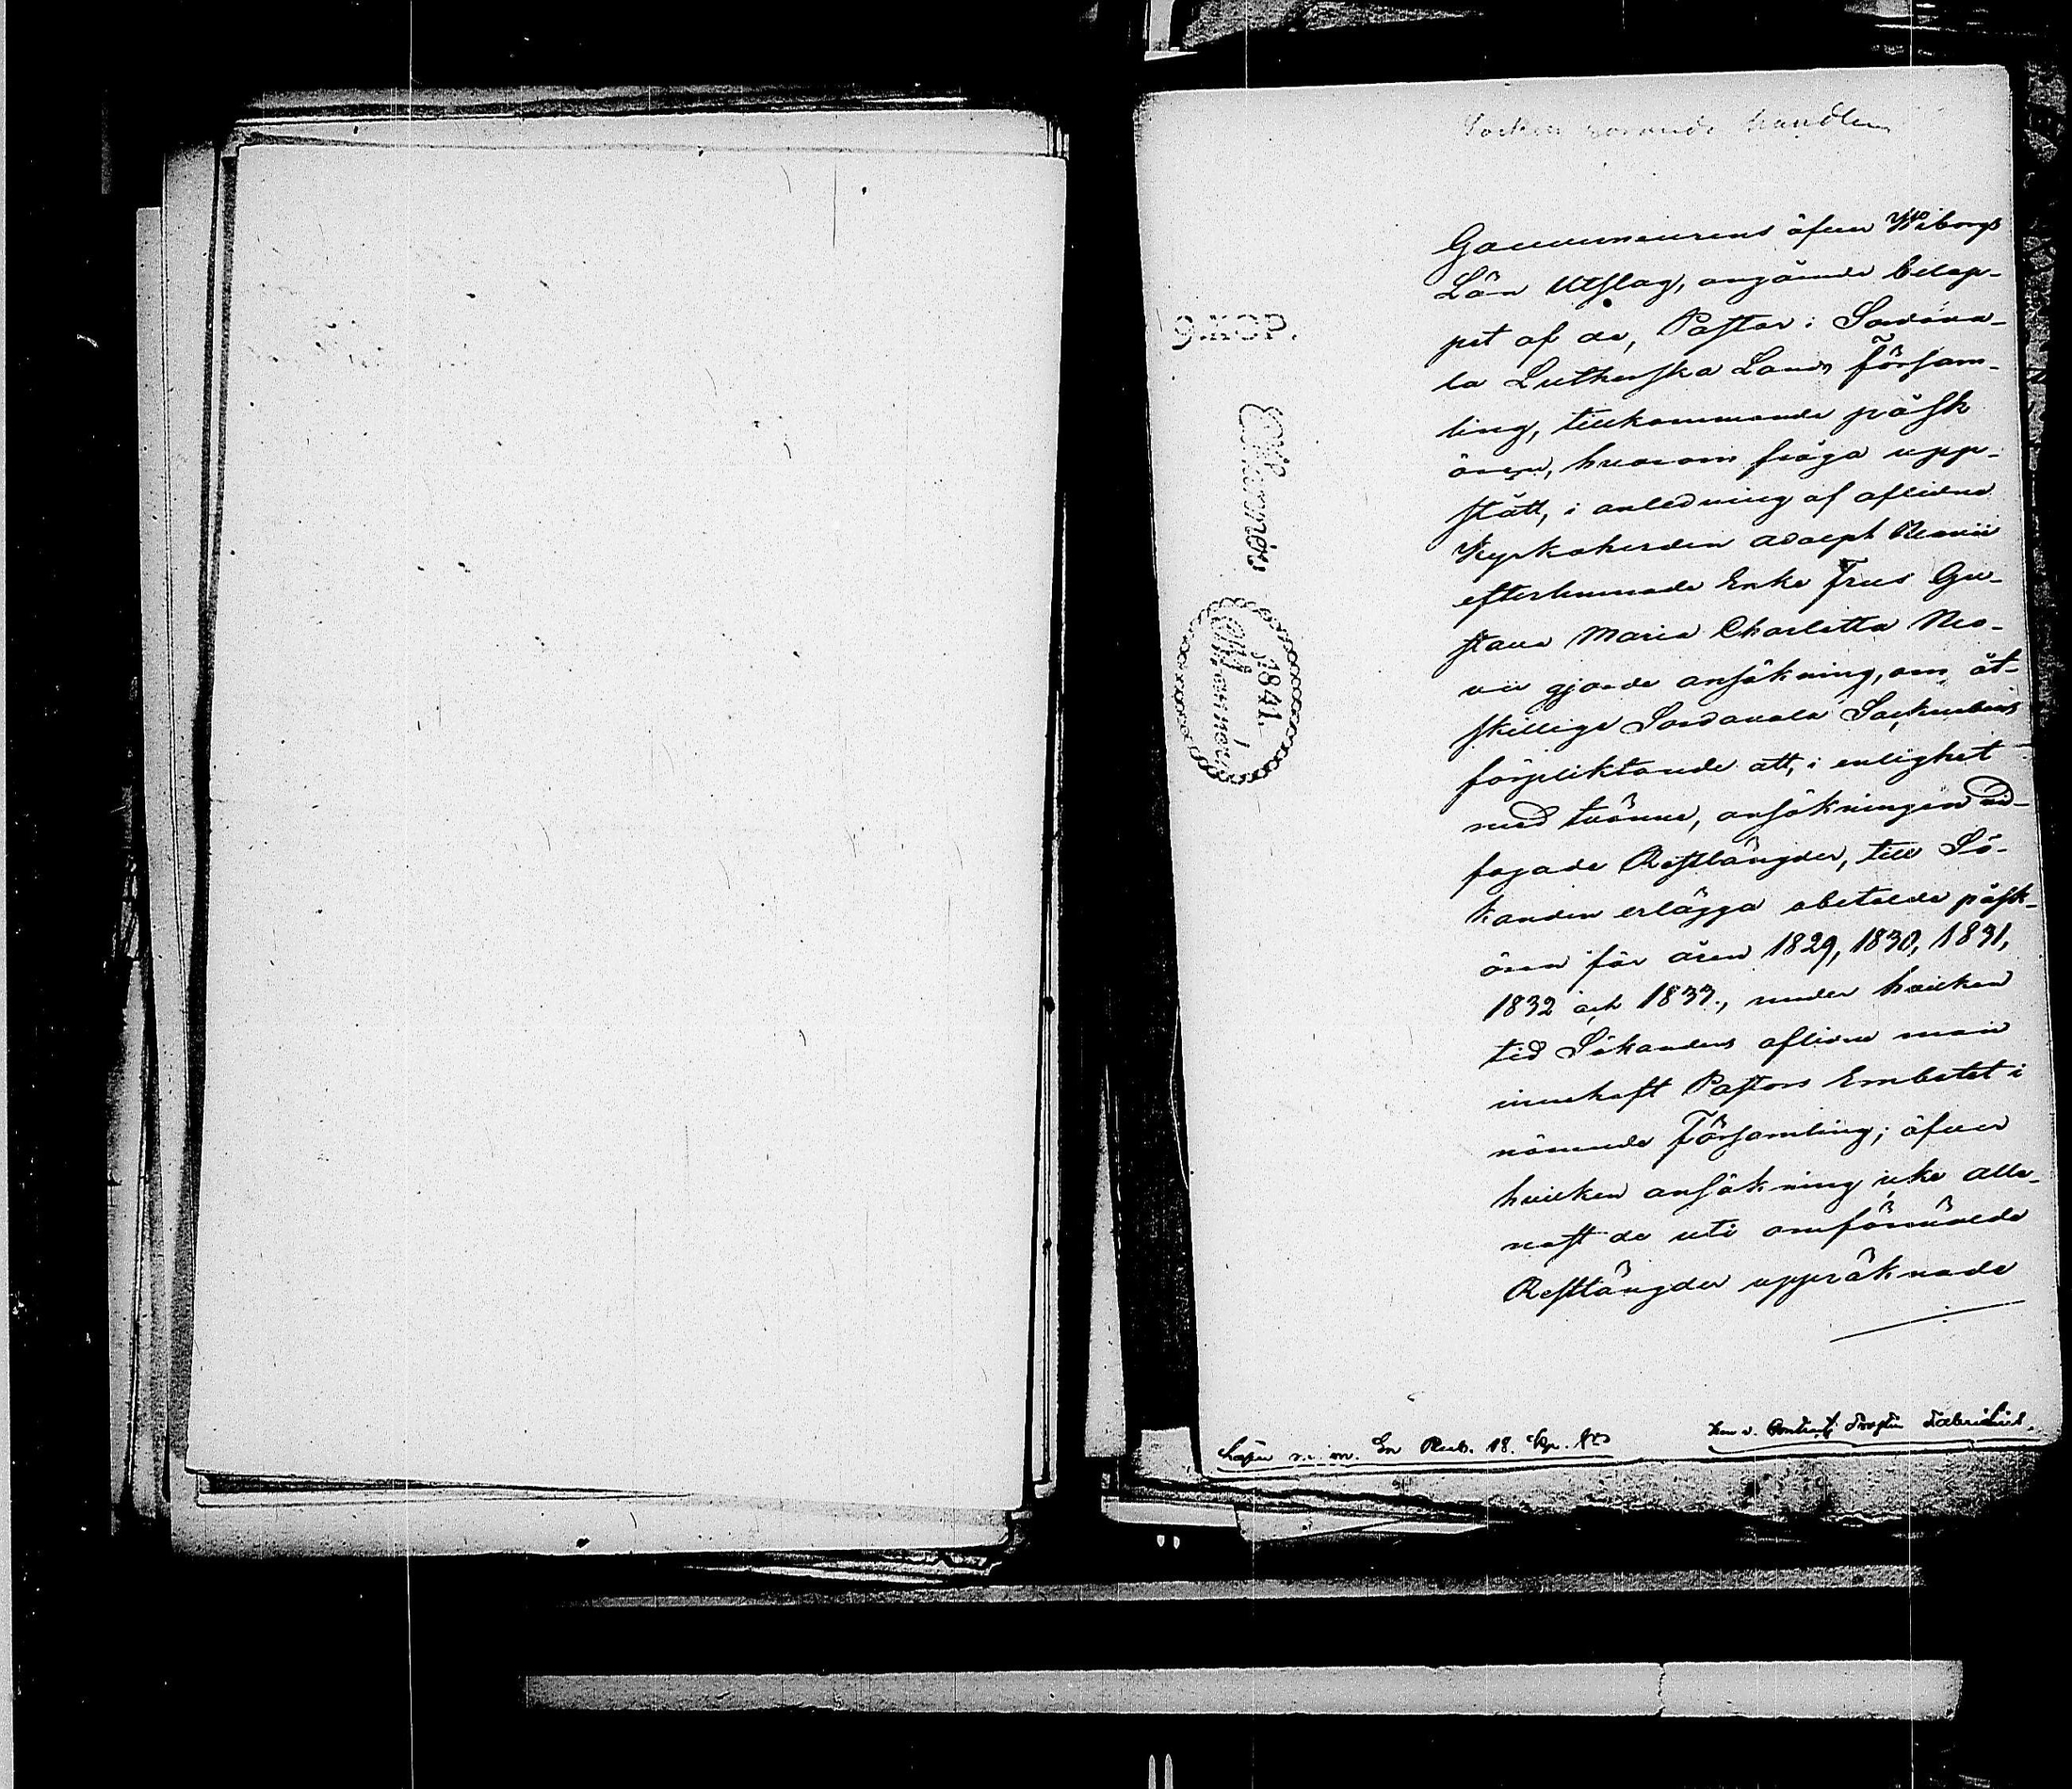 Socken rörande handlin
Gouverneurens öfver Wiborgs
Län Utslag, angående belop-
pet af de, Pastor i Sordava-
la Lutherska Lands Försam-
ling, tillkommande påsk
ören, hvarom fråga upp-
stått, i anledning af aflidne
Kyrkoherden Adolph Neovii
efterlemnade Enke Frus Gu-
stava Maria Charlotta Neo-
vii gjorde ansökning, om åt-
skillige Sordavala Sockneboers
förpliktande att, i enlighet
med tvänne, ansökningen vid-
fogade Restlängder, till Sö-
kanden erlägga obetalde påsk-
ören för åren 1829, 1830, 1831,
1832 och 1833., under hvilken
tid Sökandens aflidne man
innehaft Pastors Embetet i
nämnde Församling; öfver
hvilken ansökning icke alle-
nast de uti omförmälde
Restlängder uppräknade
9. KOP.
1841.
Lösen m. m. En Rub. 18. Kop. S:r
Herr v. Contracts Prosten Fabricius.